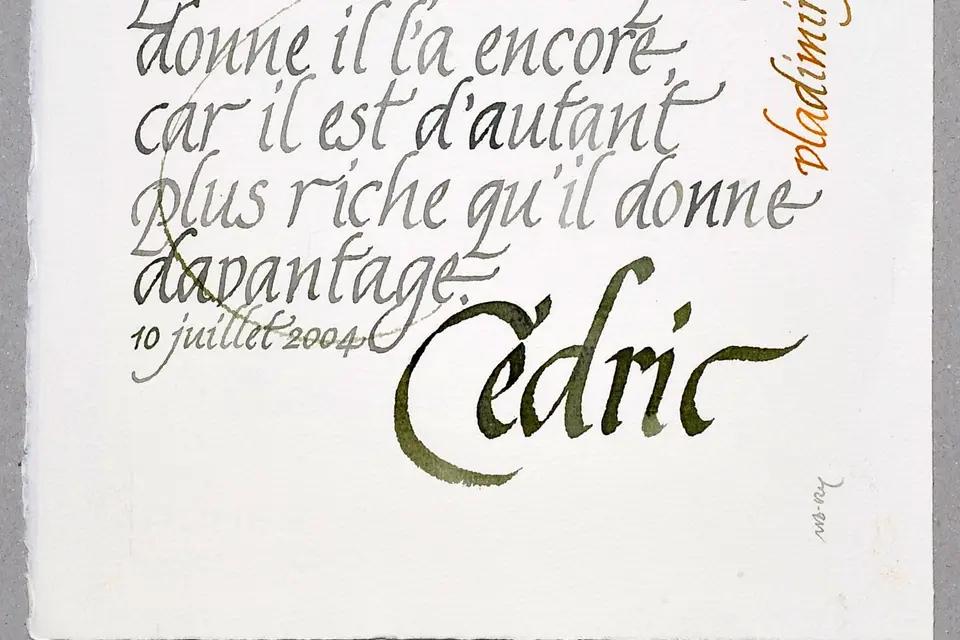 donne il l'a encore,
car il est d'autant
plus riche qu'il donne
davantage.
10 juillet 2004
Cédric
vladimir